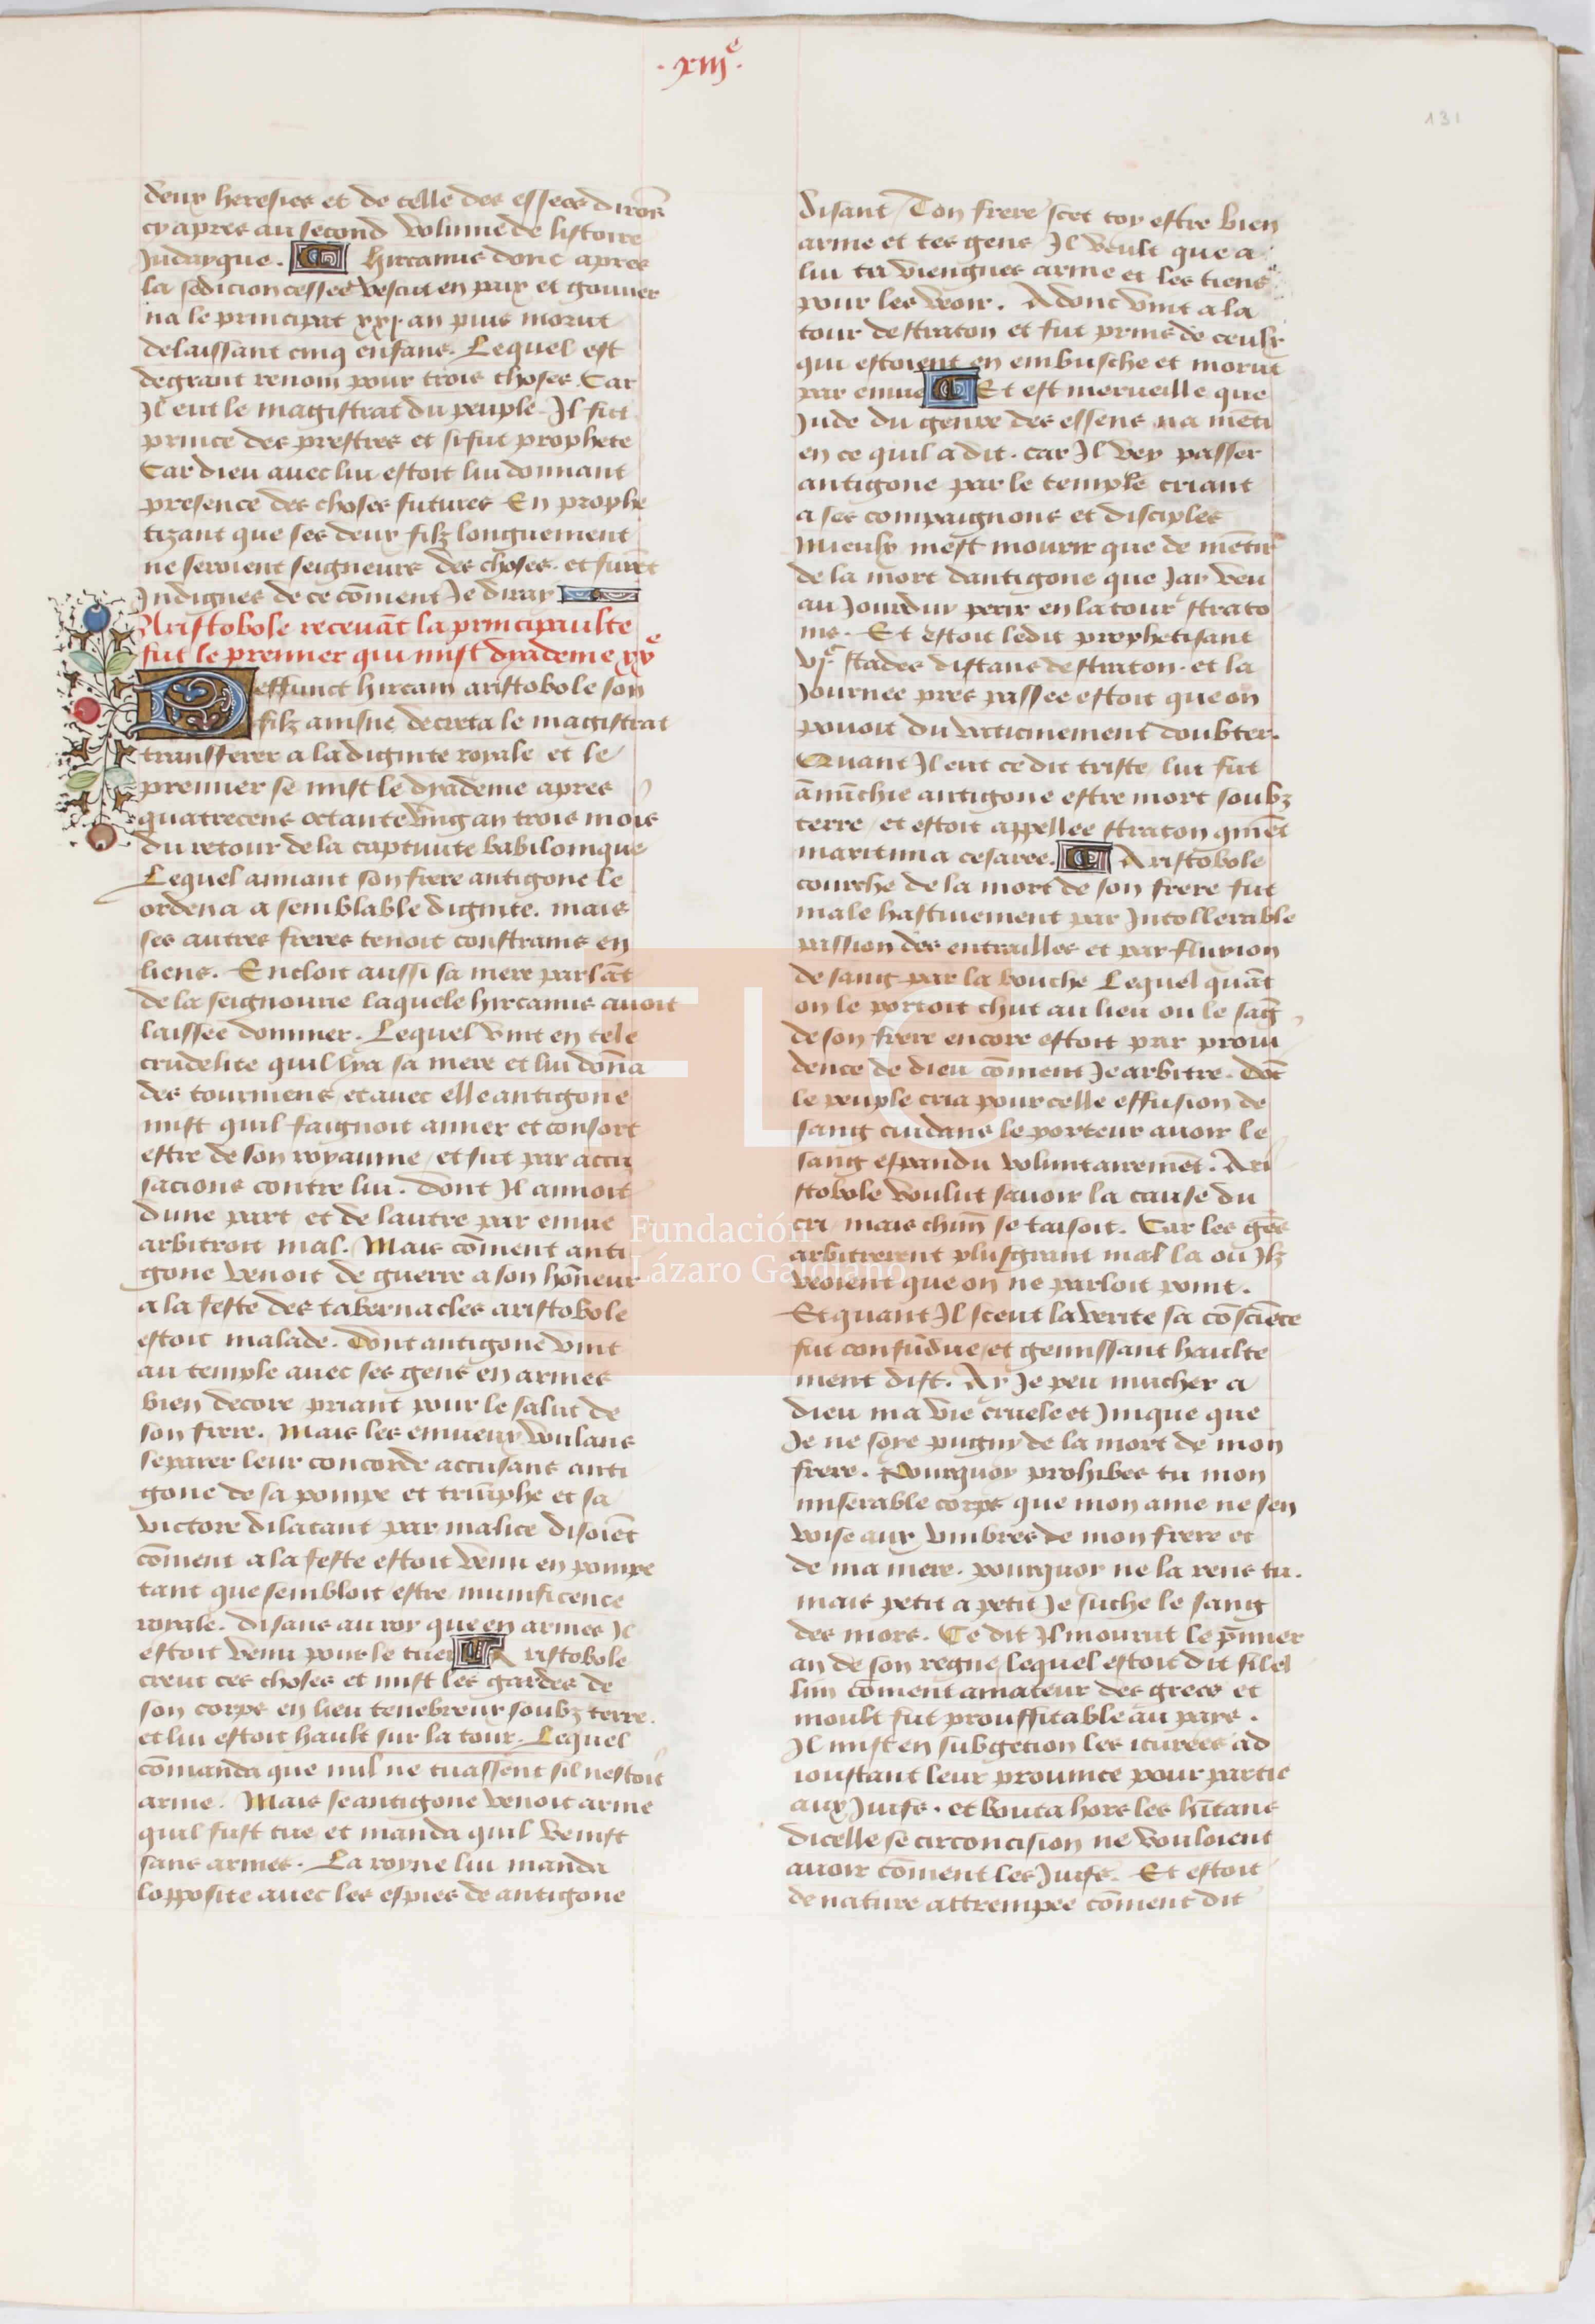 .xiiiᵉ.
131
deux heresies et de celle des essees dirōs
cy apres au second volume de listoire
Judayque. Hircanus donc apres
la sedicion cessee vescut en paix et gouuer
na le principat xxxj. an puis morut
delaissant cinq enfans. Lequel est
de grant renom pour trois choses Car
Jl eut le magistrat du peuple. Jl fut
prince des prestres et si fut prophete
Car dieu auec lui estoit lui donnant
presence des choses futures En prophe
tizant que ses deux filz longuement
ne seroient seigneurs des choses. et furēt
Jndignes de ce cōment Je diray
Aristobole receuāt la principaulte
fut le premier qui mist dyademe xvᵉ
Deffunct hircain aristobole son
filz ainsne decreta le magistrat
transferer a la dignite royale et le
premier se mist le dyademe apres
quatrecens octante vng an trois mois
du retour de la captiuite babilonique
Lequel aimant son frere antigone le
ordena a semblable dignite. mais
ses autres freres tenoit constrains en
liens. Encloit aussi sa mere parlāt
de la seignourie laquele hircanus auoit
laissee dominer. Lequel vint en tele
crudelite quil lya sa mere et lui dōna
des tourmens et auec elle antigone
mist quil faignoit aimer et consort
estre de son royaume et fut par accu
sacions contre lui. dont Jl aimoit
dune part et de lautre par enuie
arbitroit mal. Mais cōment anti
gone venoit de guerre a son hōneur
a la feste des tabernacles aristobole
estoit malade. Dont antigone vint
au temple auec ses gens en armes
bien decore priant pour le salut de
son frere. Mais les enuieux voulans
separer leur concorde accusans anti
gone de sa pompe et triūphe et sa
victore dilatant par malice disoiēt
cōment a la feste estoit venu en pompe
tant que sembloit estre munificence
royale. disans au roy que en armes Jl
estoit venu pour le tuer Aristobole
creut ces choses et mist les gardes de
son corps en lieu tenebreux soubz terre.
et lui estoit hault sur la tour. Lequel
cōmanda que nul ne tuassent sil nestoit
arme. Mais se antigone venoit arme
quil fust tue et manda quil venist
sans armes. La royne lui manda
lopposite auec les espies de antigone
disant Ton frere scet toy estre bien
arme et tes gens Jl veult que a
lui tu viengnes arme et les tiens
pour les veoir. Adonc vint a la
tour de straton et fut prins de ceulx
qui estoient en embusche et morut
par enuie Et est merueille que
Jude du genre des essens na mēti
en ce quil a dit. car Jl vey passer
antigone par le temple criant
a ses compaignons et disciples
Mieulx mest mourir que de mētir
de la mort dantigone que Jay veu
au Jourduy perir en la tour strato
nis. Et estoit ledit prophetisant
vjᶜ stades distans de straton. et la
Journee pres passee estoit que on
pouoit du vaticinement doubter.
Quant Jl eut ce dit triste lui fut
ānūchie antigone estre mort soubz
terre et estoit appellee straton qmēt
maritima cesaree. Aristobole
courche de la mort de son frere fut
male hastiuement par Jntollerable
passion des entrailles et par fluxion
de sang par la bouche Lequel quāt
on le portoit chut au lieu ou le sāg
de son frere encore estoit par proui
dence de dieu cōment Je arbitre. Dōt
le peuple cria pour celle effusion de
sang cuidans le porteur auoir le
sang espandu voluntairemēt. Ari
stobole voulut sauoir la cause du
cri mais chūn se taisoit. Car les gēs
arbitrerent plus grant mal la ou Jlz
veoient que on ne parloit point.
Et quant Jl sceut la verite sa cōsciēce
fut confūdue et gemissant haulte
ment dist. Ay Je peu mucher a
dieu ma vie cruele et Jnique que
Je ne soye pugny de la mort de mon
frere. Pourquoy prohibes tu mon
miserable corps que mon ame ne sen
voise aux vmbres de mon frere et
de ma mere. pourquoy ne la rens tu.
mais petit a petit Je suche le sang
des mors. Ce dit Jl mourut le p̄mier
an de son regne lequel estoit dit filel
lim cōment amateur des grecs et
moult fut prouffitable au pays.
Jl mist en subgetion les iturees ad
ioustant leur prouince pour partie
aux Juifs. et bouta hors les hītans
dicelle se circoncision ne vouloient
auoir cōment les Juifs. Et estoit
de nature attrempee cōment dit
FLG
Fundación
Lázaro Galdiano